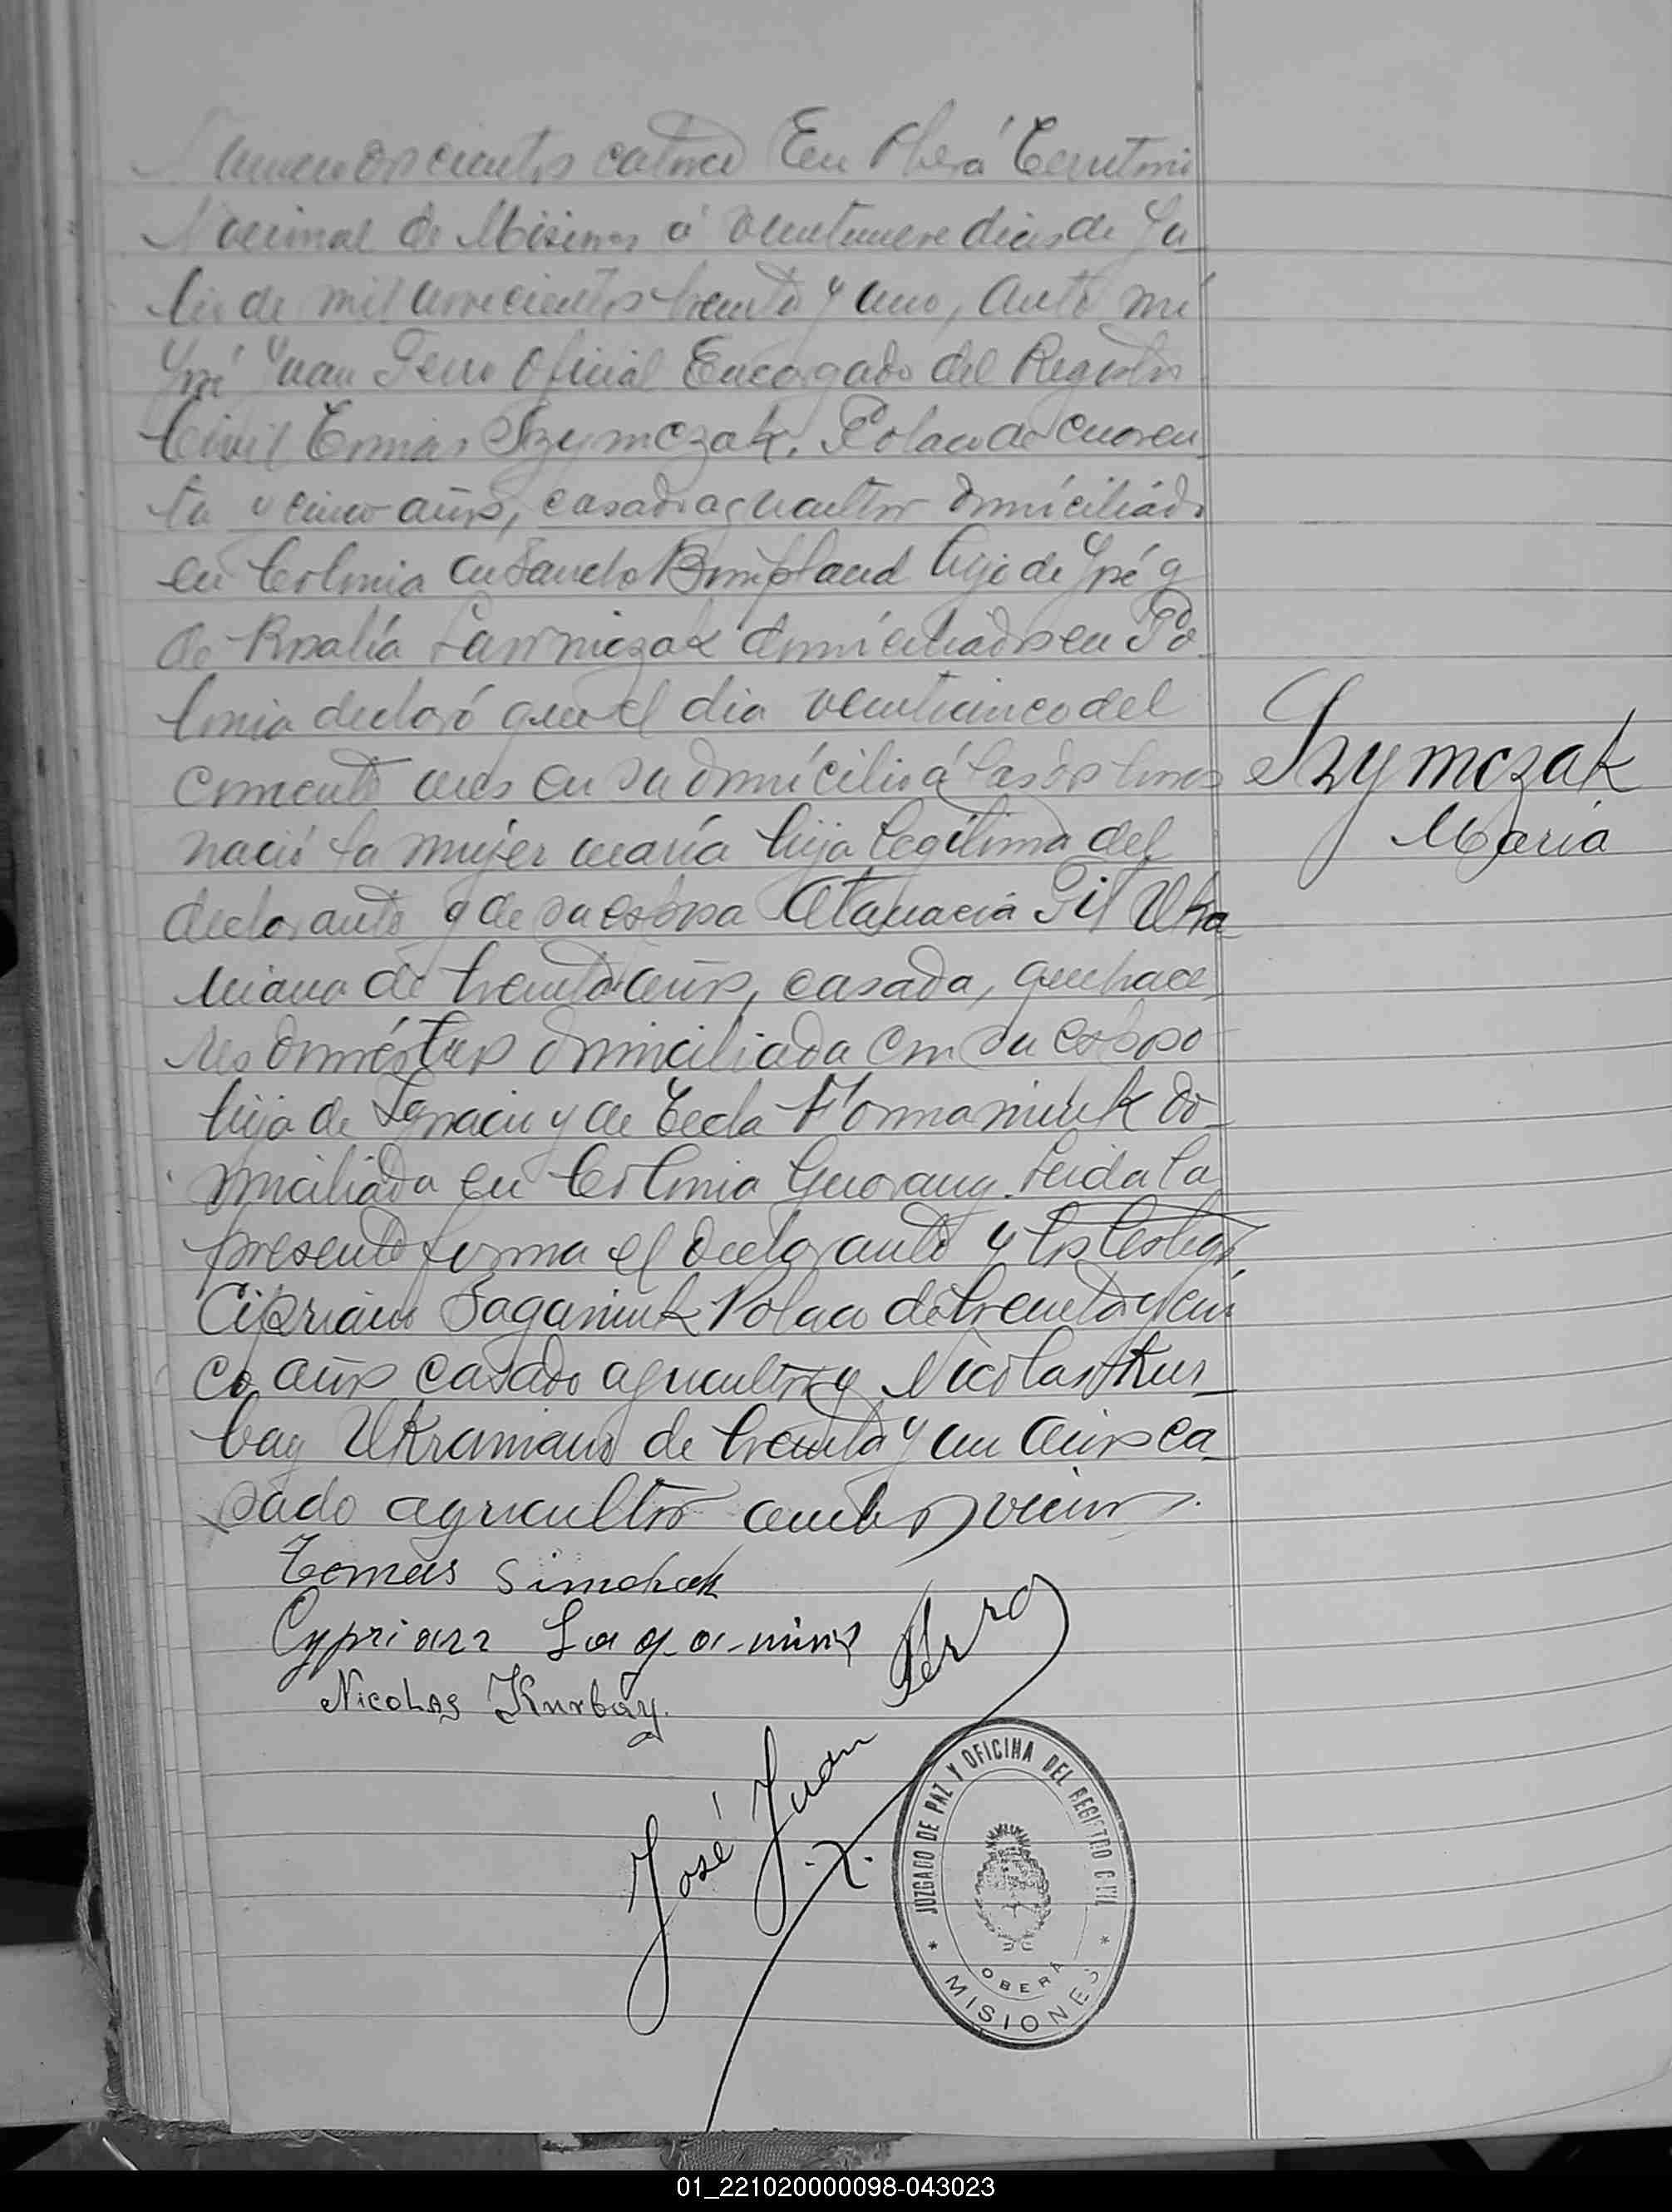 Numero doscientos catorce En Oberá Territorio
Nacional de Misiones á veintinueve dias de Ju-
lio de mil novecientos treinta y uno, ante mi
José Juan Ferro Oficial Encargado del Registro
Civil Tomás Szymczak, Polaco de cuaren-
ta y cinco años, casado agricultor domiciliado
en Colonia Bompland hijo de José y
de Rosalía domiciliados en Po-
lonia declaró que el dia veinticinco del
corriente mes en su domicilio á las dos horas
nació la mujer María hija legítima del
declarante y de su esposa Atanacia Pit Ukra
niana de treinta años, casada, quehace-
res domésticos domiciliada con su esposo
hija de Ignacio y de Tecla Homaniuk do-
miciliada en Colonia Guarany. Leida la
presente firma el declarante y los testigos
Cipriano Saganiuk Polaco de treinta y cin
co años casado agricultor y Nicolas Kur-
bay Ukraniano de treinta y un años ca-
sado agricultor ambos vecinos.
Szymczak
Maria
Tomas Simchak
Cyprian
Nicolas Kurbay.
José Juan Ferro
JUZGADO DE PAZ Y OFICINA DEL REGISTRO CIVIL
* OBERÁ *
MISIONES
01_221020000098-043023